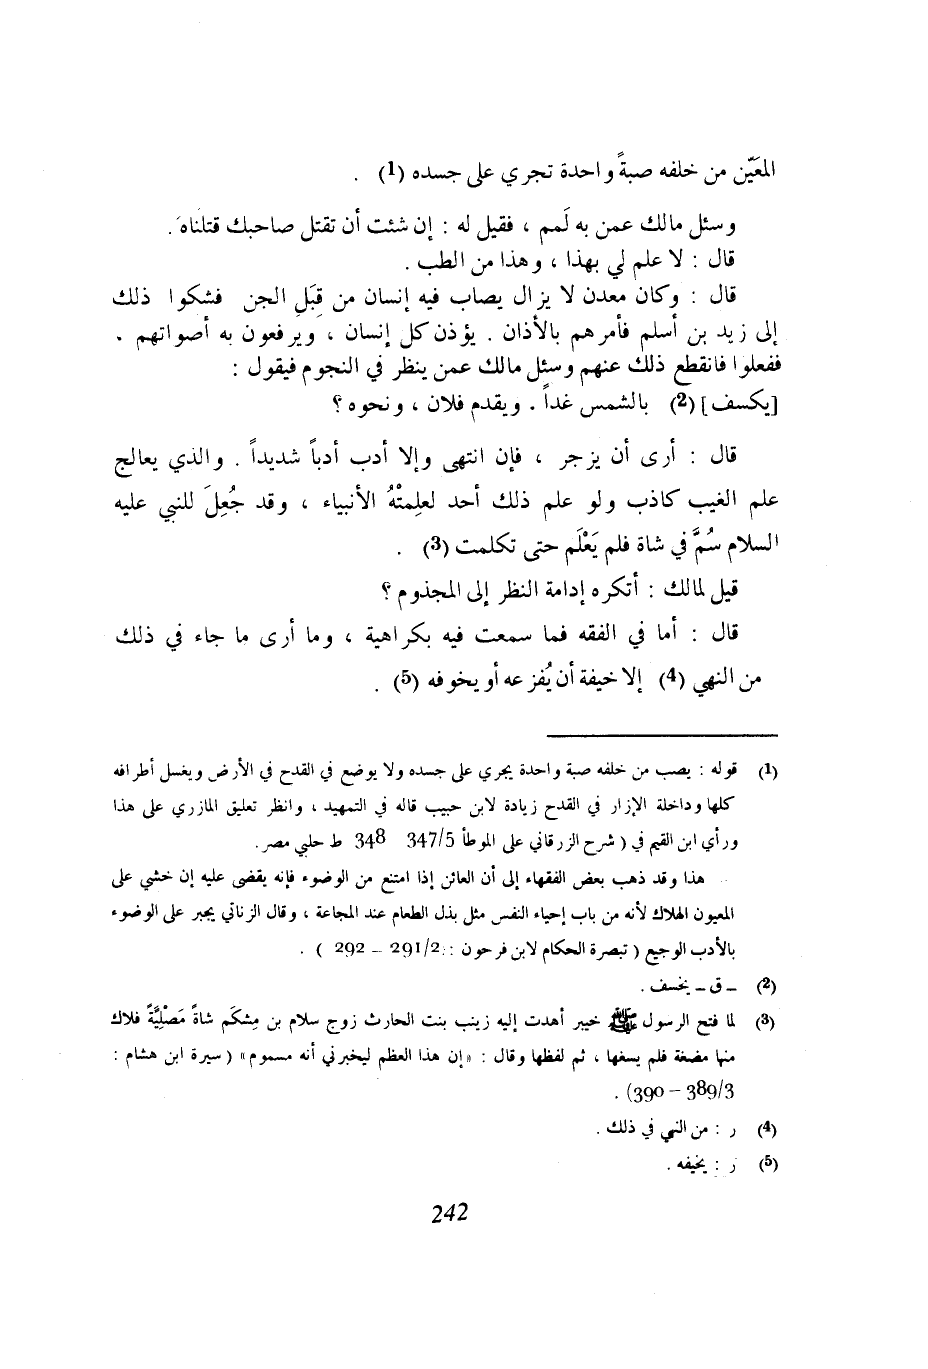 المعَيّن من خلفه صبةً واحدة تجري على جسده (1) .
وسئل مالك عمن به لَمم ، فقيل له : إن شئت أن تقتل صاحبك قتلناه .
قال : لا علم لي بهذا ، وهذا من الطب .
قال : وكان معدن لا يزال يصاب فيه إنسان من قِبَلِ الجن فشكوا ذلك
إلى زيد بن أسلم فأمرهم بالأذان . يؤذن كل إنسان ، ويرفعون به أصواتهم .
ففعلوا فانقطع ذلك عنهم وسئل مالك عمن ينظر في النجوم فيقول :
[يكسف] (2) بالشمس غداً . ويقدم فلان ، ونحوه ؟
قال : أرى أن يزجر ، فإن انتهى وإلا أدب أدباً شديداً . والذي يعالج
علم الغيب كاذب ولو علم ذلك أحد لعلِمتْهُ الأنبياء ، وقد جُعِلَ للنبي عليه
السلام سُمَّ في شاة فلم يَعْلَم حتى تكلمت (3) .
قيل لمالك : أتكره إدامة النظر إلى المجذوم ؟
قال : أما في الفقه فما سمعت فيه بكراهية ، وما أرى ما جاء في ذلك
من النهي (4) إلا خيفة أن يُفزعه أو يخوفه (5) .
(1) قوله : يصب من خلفه صبة واحدة يجري على جسده ولا يوضع في القدح في الأرض ويغسل أطرافه
كلها وداخلة الإزار في القدح زيادة لابن حبيب قاله في التمهيد ، وانظر تعليق المازري على هذا
ورأي ابن القيم في ( شرح الزرقاني على الموطأ 347/5 348 ط حلبي مصر .
هذا وقد ذهب بعض الفقهاء إلى أن العائن إذا امتنع من الوضوء فإنه يقضى عليه إن خشي على
المعيون الهلاك لأنه من باب إحياء النفس مثل بذل الطعام عند المجاعة ، وقال الزناتي يجبر على الوضوء
بالأدب الوجيع ( تبصرة الحكام لابن فرحون : 291/2 – 292 ) .
(2) ـ ق ـ يخسف .
(3) لما فتح الرسول ﷺ خيبر أهدت إليه زينب بنت الحارث زوج سلام بن مِشكَم شاةً مَصْلِيَّةً فلاك
منها مضغة فلم يسغها ، ثم لفظها وقال : «إن هذا العظم ليخبرني أنه مسموم» ( سيرة ابن هشام :
389/3 – 390) .
(4) ر : من النهي في ذلك .
(5) ر : يخيفه .
242